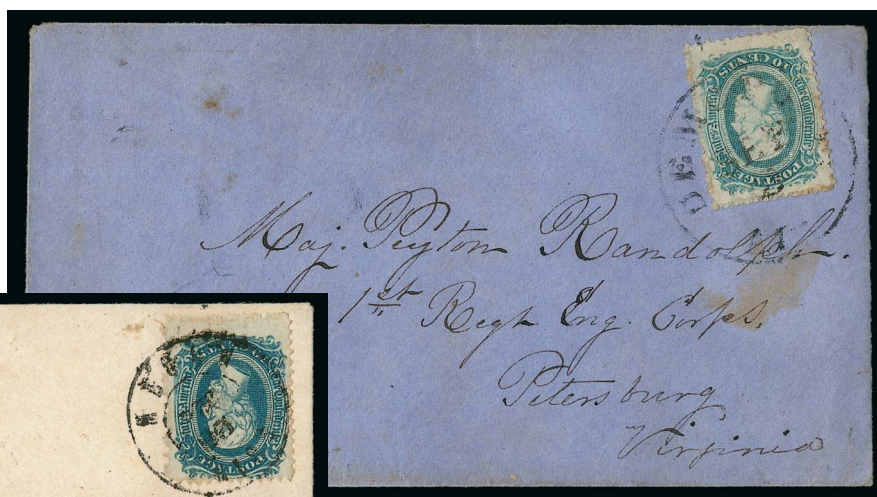 10 CENTS
The Confederate
States of America
POSTAGE
Maj. Peyton Randolph.
1st Regt Eng. Corps.
Petersburg
Virginia
POSTAGE